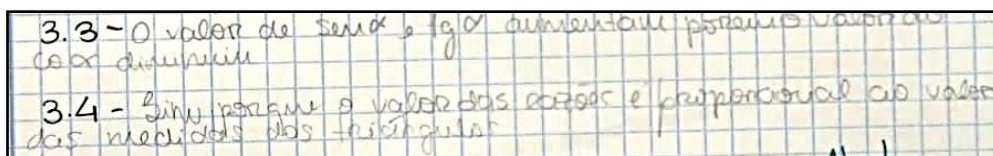 3.3 - O valor de senα e tgα aumentam porém o valor do
cosα diminuiu
3.4 - Sim, porque o valor das razões é proporcional ao valor
das medidas dos triângulos